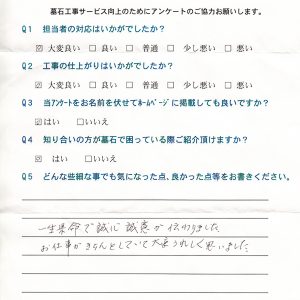 墓石工事サービス向上のためにアンケートのご協力お願します。
Q1 担当者の対応はいかがでしたか?
☑ 大変良い □ 良い □ 普通 □ 少し悪い □ 悪い
Q2 工事の仕上がりはいかがでしたか?
☑ 大変良い □ 良い □ 普通 □ 少し悪い □ 悪い
Q3 当アンケートをお名前を伏せてホームページに掲載しても良いですか?
☑はい □いいえ
Q4 知り合いの方が墓石で困っている際ご紹介頂けますか?
☑ はい □いいえ
Q5 どんな些細な事でも気になった点、良かった点等をお書きください。
一生懸命で誠心誠意が伝わりました
お仕事がきちんとしていて大変うれしく思いました